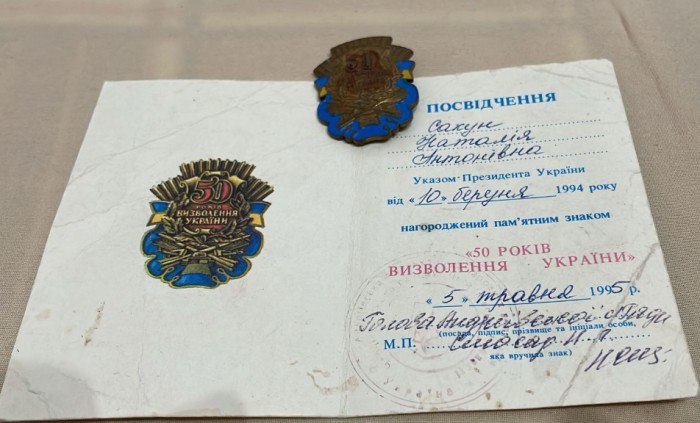 50
50
РОКІВ
ВИЗВОЛЕННЯ
УКРАЇНИ
ПОСВІДЧЕННЯ
Сакун
Наталія
Антонівна
Указом Президента України
від «10» березня 1994 року
нагороджений пам'ятним знаком
«50 РОКІВ
ВИЗВОЛЕННЯ УКРАЇНИ»
«5» травня 1995 р.
Голова Андріївської с/Ради
(посада, підпис, прізвище та ініціали особи,
М.П.
яка вручила знак)